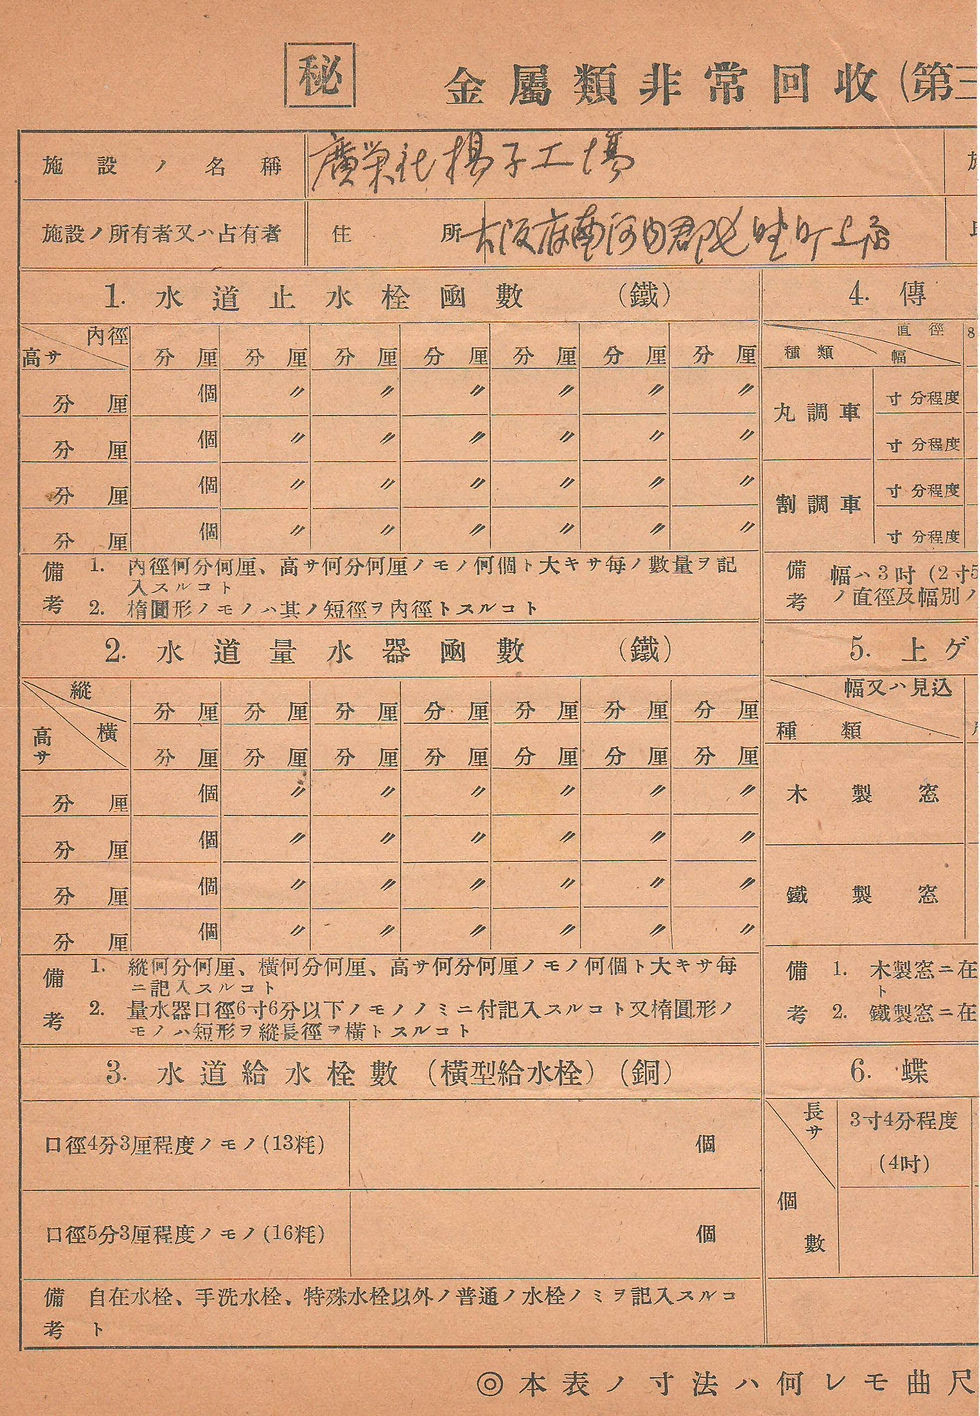 秘
金屬類非常回收(第三
施設ノ名稱 廣栄社楊子工場
施設ノ所有者又ハ占有者 住所 大阪府南河内郡 町
1. 水道止水栓函數 (鐵)
內徑
高サ 分厘 分厘 分厘 分厘 分厘 分厘 分厘
分厘 個 〃 〃 〃 〃 〃 〃
分厘 個 〃 〃 〃 〃 〃 〃
分厘 個 〃 〃 〃 〃 〃 〃
分厘 個 〃 〃 〃 〃 〃 〃
備考 1. 內徑何分何厘、高サ何分何厘ノモノ何個ト大キサ每ノ數量ヲ記
入スルコト
2. 楕圓形ノモノハ其ノ短徑ヲ內徑トスルコト
2. 水道量水器函數 (鐵)
縱 分厘 分厘 分厘 分厘 分厘 分厘 分厘
高サ 橫 分厘 分厘 分厘 分厘 分厘 分厘 分厘
分厘 個 〃 〃 〃 〃 〃 〃
分厘 個 〃 〃 〃 〃 〃 〃
分厘 個 〃 〃 〃 〃 〃 〃
分厘 個 〃 〃 〃 〃 〃 〃
備考 1. 縱何分何厘、橫何分何厘、高サ何分何厘ノモノ何個ト大キサ每
ニ記入スルコト
2. 量水器口徑6寸6分以下ノモノノミニ付記入スルコト又楕圓形ノ
モノハ短形ヲ縱長徑ヲ橫トスルコト
3. 水道給水栓數 (橫型給水栓) (銅)
口徑4分3厘程度ノモノ(13粍) 個
口徑5分3厘程度ノモノ(16粍) 個
備考 自在水栓、手洗水栓、特殊水栓以外ノ普通ノ水栓ノミヲ記入スルコ
ト
4. 傳
直徑 8
種類 幅
丸調車 寸 分程度
寸 分程度
割調車 寸 分程度
寸 分程度
備考 幅ハ3吋(2寸5
ノ直徑及幅別ノ
5. 上ゲ
幅又ハ見込
種類
木製窓
鐵製窓
備考 1. 木製窓ニ在
ト
2. 鐵製窓ニ在
6. 蝶
長サ 3寸4分程度
(4吋)
個數
◎本表ノ寸法ハ何レモ曲尺